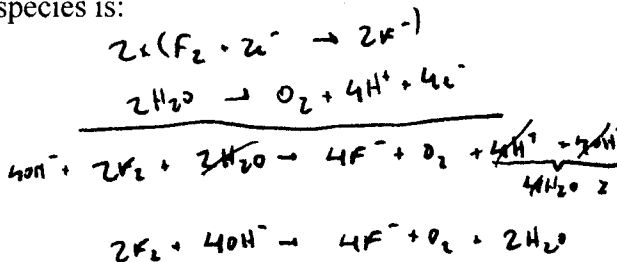 species is:
2x(F₂ + 2e⁻ → 2F⁻)
2H₂O → O₂ + 4H⁺ + 4e⁻
4OH⁻ + 2F₂ + 2H₂O → 4F⁻ + O₂ + 4H⁺ + 4OH⁻
4H₂O 2
2F₂ + 4OH⁻ → 4F⁻ + O₂ + 2H₂O